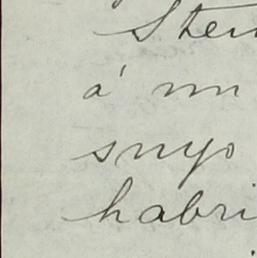 Stei
á mi
snyo
habri